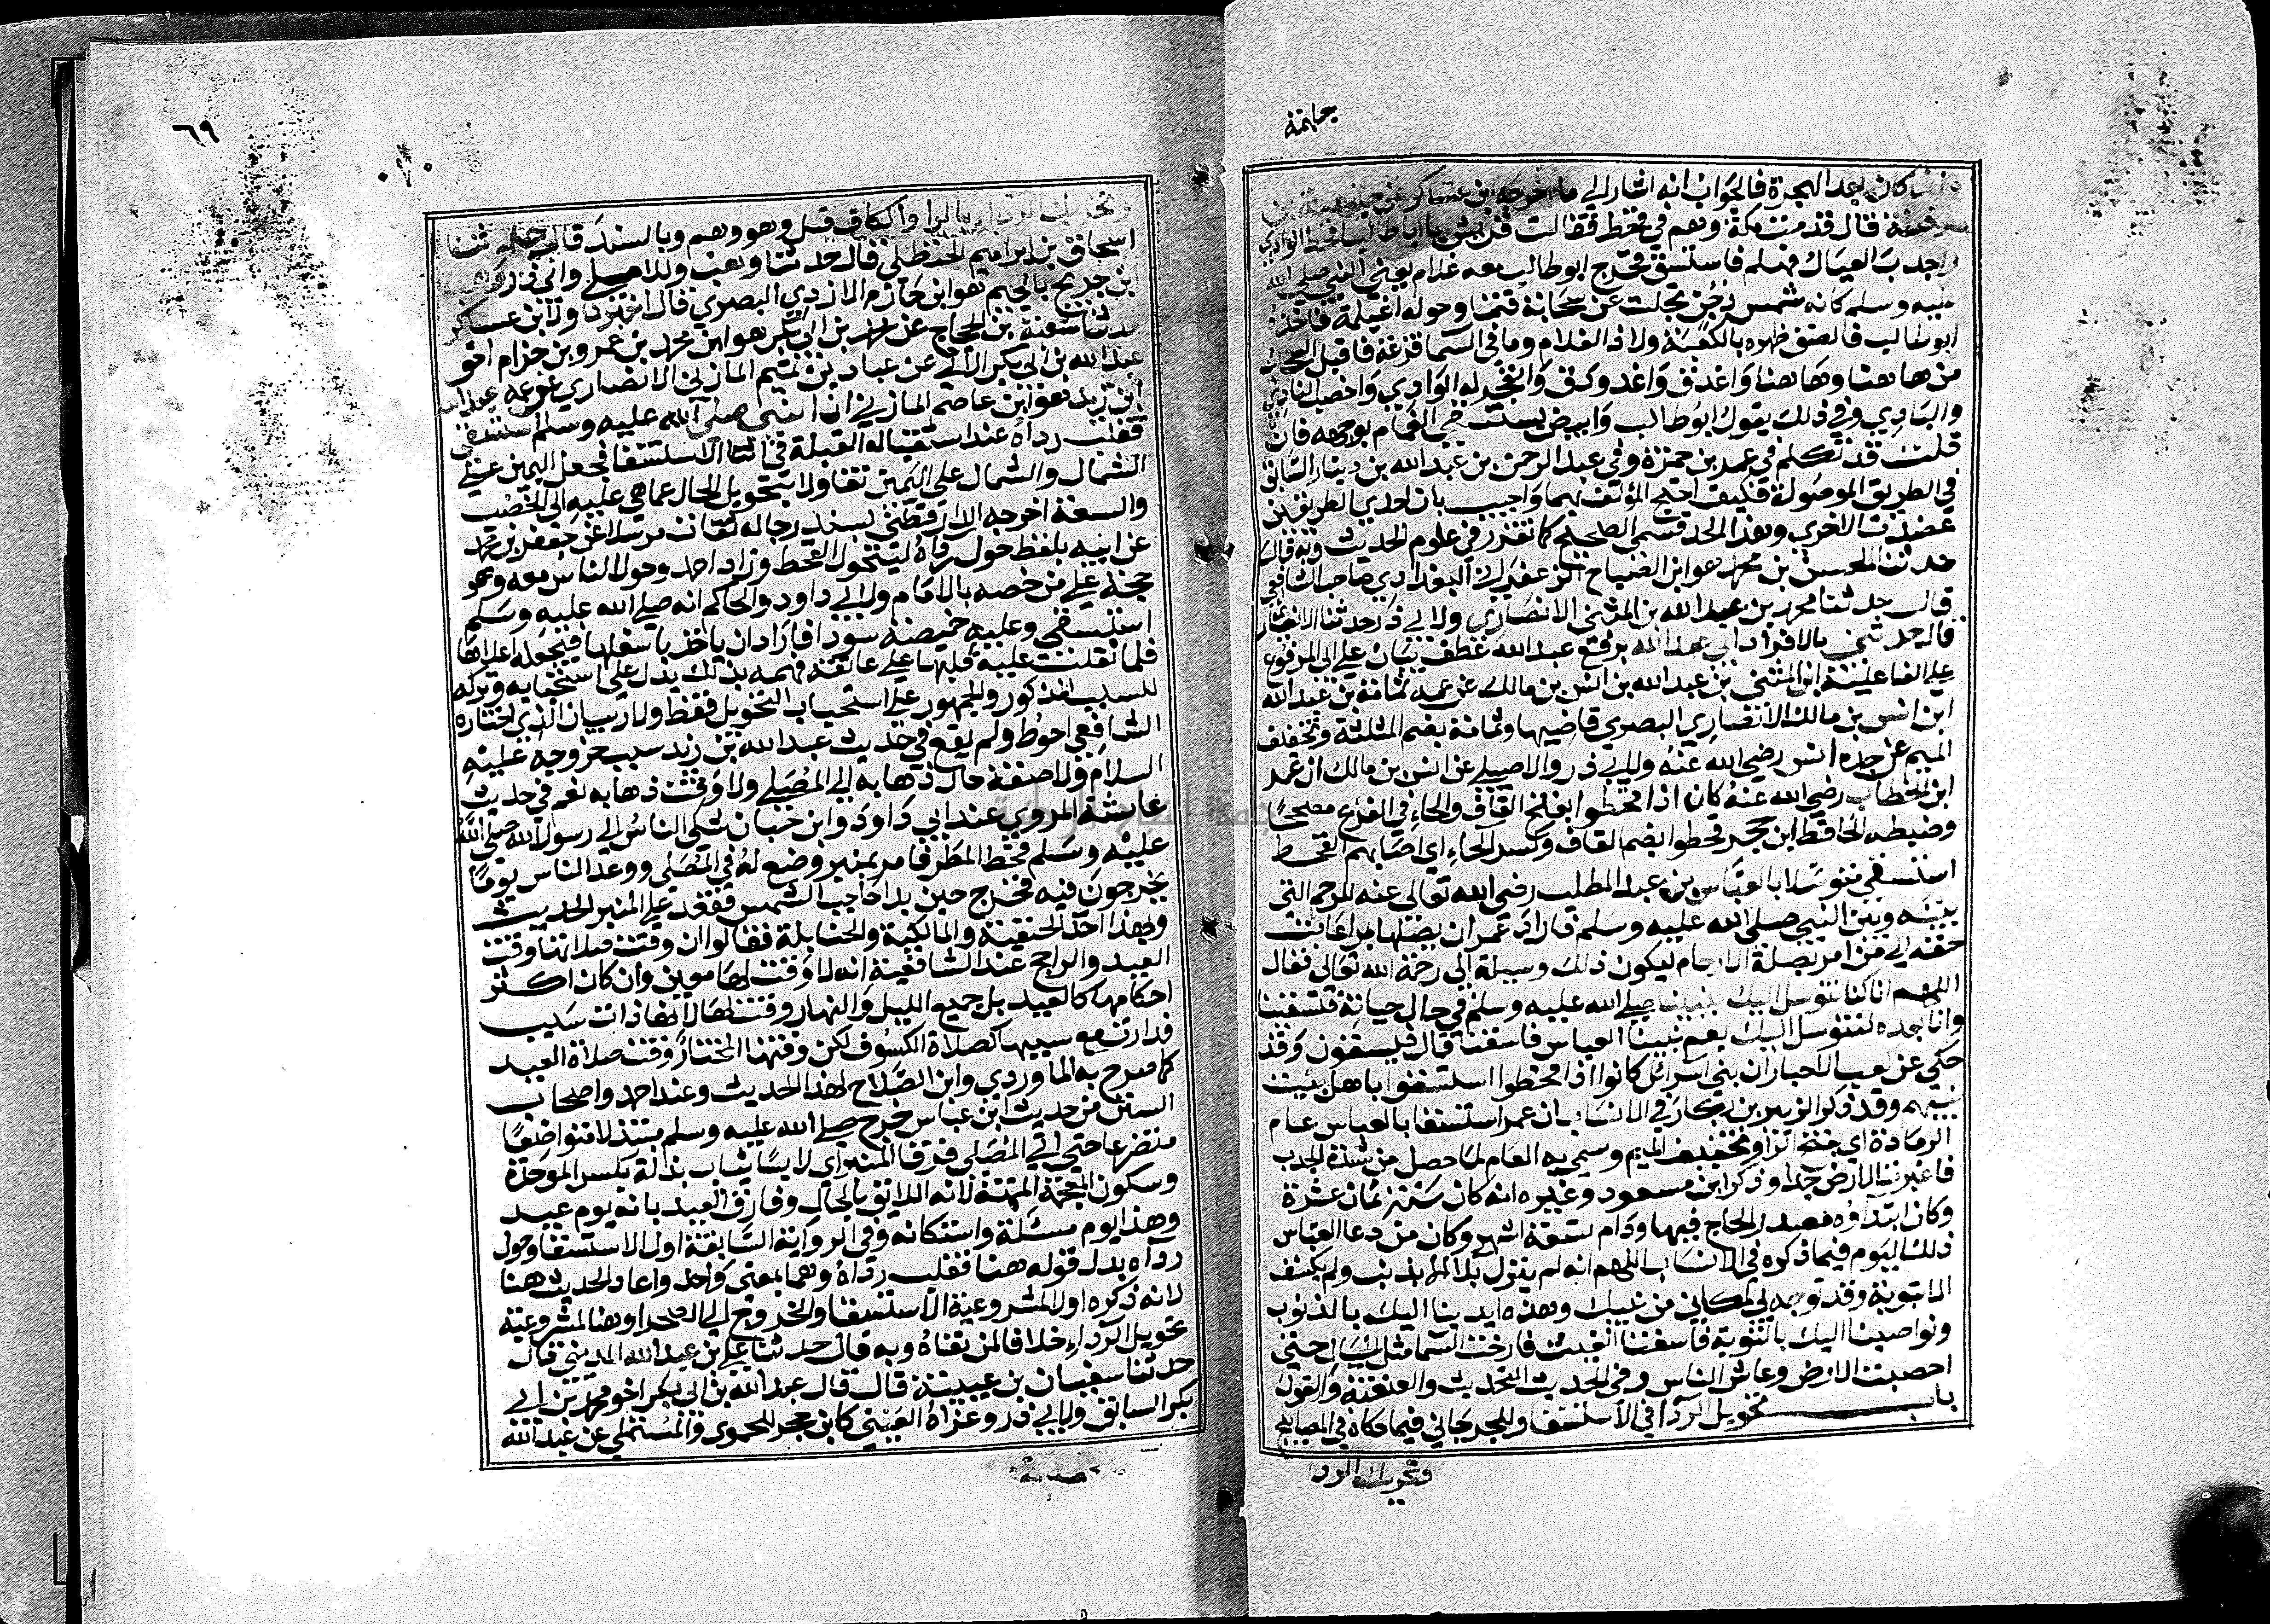 كان بعد الهجرة فالجواب انه اشار الي ما اخرجه ابن عساكر عن
قال قدمت مكة وهم في قحط فقالت قريش يا ابا طالب اقحط الوادي
واجدب العيال فهلم فاستسق فخرج ابو طالب معه غلام يعني النبي صلي الله
عليه وسلم كانه شمس دجن تجلت عن سحابة قتما وحوله اغيلمة فاخذه
ابو طالب فالصق ظهره بالكعبة ولاذ الغلام وما في السما قزعة فاقبل السحاب
من هاهنا وهاهنا واغدق واغدودق وانفجر له الوادي واخصب النادي
والبادي وفي ذلك يقول ابو طالب وابيض يستسقي الغمام بوجهه فان
قلت قد تكلم في عمر بن حمزة وفي عبد الرحمن بن عبد الله بن دينار السابق
في الطريق الموصولة فكيف احتج المؤلف بهما واجيب بان احدي الطريقين
عضدت الاخري وهذا احد قسمي الصحيح كما تقرر في علوم الحديث وبه قال
حدثنا الحسن بن محمد هو ابن الصباح الزعفراني البغدادي صاحب الشافعي
قال حدثنا محمد بن عبد الله بن المثني الانصاري ولابي ذر حدثنا الانصاري
قال حدثني بالافراد ابي عبد الله برفع عبد الله عطف بيان علي ابي المرفوع
علي الفاعلية ابن المثني بن عبد الله بن انس بن مالك عن عمه ثمامة بن عبد الله
ابن انس بن مالك الانصاري البصري قاضيها وثمامة بضم المثلثة وتخفيف
الميم عن جده انس رضي الله عنه ولابي ذر والاصيلي عن انس بن مالك ان عمر
ابن الخطاب رضي الله عنه كان اذا قحطوا بفتح القاف والحاء في الفرع مصححا
وضبطه الحافظ ابن حجر قحطوا بضم القاف وكسر الحاء اي اصابهم القحط
استسقي متوسلا بالعباس بن عبد المطلب رضي الله تعالي عنه للرحم التي
بينه وبين النبي صلي الله عليه وسلم فاراد عمر ان يصلها بمراعات
حقه الي من امر بصلة الارحام ليكون ذلك وسيلة الي رحمة الله تعالي فقال
اللهم انا كنا نتوسل اليك بنبينا صلي الله عليه وسلم في حال حياته فتسقينا
وانا بعده نتوسل اليك بعم نبينا العباس فاسقنا قال فيسقون وقد
حكي عن كعب الاحبار ان بني اسرائل كانوا اذا قحطوا استسقوا باهل بيت
نبيهم وقد ذكر الزبير بن بكار في الانساب ان عمر استسقا بالعباس عام
الرمادة اي بفتح الرا وتخفيف الميم وسمي به العام لما حصل من شدة الجدب
فاغبرت الارض جدا وذكر ابن مسعود وغيره انه كان سنة ثمان عشرة
وكان ابتداؤه مصدر الحاج فيها ودام تسعة اشهر وكان من دعا العباس
ذلك اليوم فيما ذكره في الانساب اللهم انه لم ينزل بلا الا بذنب ولم يكشف
الا بتوبة وقد توجه لي لمكاني من نبيك وهذه ايدينا اليك بالذنوب
ونواصينا اليك بالتوبة فاسقنا الغيث فارخت السما مثل الجبال حتي
اخصبت الارض وعاش الناس وفي الحديث التحديث والعنعنة والقول
باب تحويل الردا في الاستسقا وللجرجاني فيما حكاه في المصابيح
وتحريك الردا
٦٩
وتحريك الردا بالرا والكاف قيل وهو وهم وبالسند قال حدثنا
اسحاق بن ابراهيم الحنظلي قال حدثنا وهب وللاصيلي وابي ذر وهب
ابن جرير بالجيم هو ابن حازم الازدي البصري قال اخبرنا ولابن عساكر
حدثنا شعبة بن الحجاج عن محمد بن ابي بكر هو ابن محمد بن عمرو بن حزام اخو
عبد الله بن ابي بكر الاتي عن عباد بن تميم المازني الانصاري عن عمه عبد الله
ابن زيد هو ابن عاصم المازني ان النبي صلي الله عليه وسلم استسقي
فقلب رداه عند استقباله القبلة في اثنا الاستسقا فجعل اليمين علي
الشمال والشمال علي اليمين تفاولا بتحويل الحال عما هي عليه الي الخصب
والسعة اخرجه الدارقطني بسند رجاله ثقات مرسلا عن جعفر بن محمد
عن ابيه بلفظ حول رداه ليتحول القحط وزاد احمد وحول الناس معه وهو
حجة علي من خصه بالامام ولابي داود والحاكم انه صلي الله عليه وسلم
استسقي وعليه خميصة سودا فاراد ان ياخذ باسفلها فيجعله اعلاها
فلما ثقلت عليه قلبها علي عاتقه فهمه بذلك يدل علي استحبابه وتركه
للسبب المذكور والجمهور علي استحباب التحويل فقط ولا ريب ان الذي اختاره
الشافعي احوط ولم يقع في حديث عبد الله بن زيد سبب خروجه عليه
السلام ولا صفة حال ذهابه الي المصلي ولا وقت ذهابه نعم في حديث
عايشة المروي عند ابي داود وابن حبان شكي الناس الي رسول الله صلي الله
عليه وسلم قحط المطر فامر بمنبر وضع له في المصلي ووعد الناس يوما
يخرجون فيه فخرج حين بدا حاجب الشمس فقعد علي المنبر الحديث
وبهذا اخذ الحنفية والمالكية والحنابلة فقالوا ان وقت صلاتها وقت
العيد والراجح عند الشافعية انه لا وقت لها معين وان كان اكثر
احكامها كالعيد بل جميع الليل والنهار وقت لها لانها ذات سبب
فدارت مع سببها كصلاة الكسوف لكن وقتها المختار وقت صلاة العيد
كما صرح به الماوردي وابن الصلاح لهذا الحديث وعند احمد واصحاب
السنن من حديث ابن عباس خرج صلي الله عليه وسلم متبذلا متواضعا
متضرعا حتي اتي المصلي فرقا المنبر اي لابسا ثياب بذلة بكسر الموحدة
وسكون المعجمة المهنة لانه اللائق بالحال وفارق العيد بانه يوم عيد
وهذا يوم مسئلة واستكانة وفي الرواية السابقة اول الاستسقا وحول
رداه بدل قوله هنا فقلب رداه وهما بمعني واحد واعاد الحديث هنا
لانه ذكره اولا لمشروعية الاستسقا والخروج الي الصحرا وهنا لمشروعية
تحويل الرداء خلافا لمن نفاه وبه قال حدثنا علي بن عبد الله المديني قال
حدثنا سفيان بن عيينة قال قال عبد الله بن ابي بكر اخو محمد بن ابي
بكر السابق ولابي ذر وعزاه العيني كابن حجر للحموي والمستملي عن عبد الله